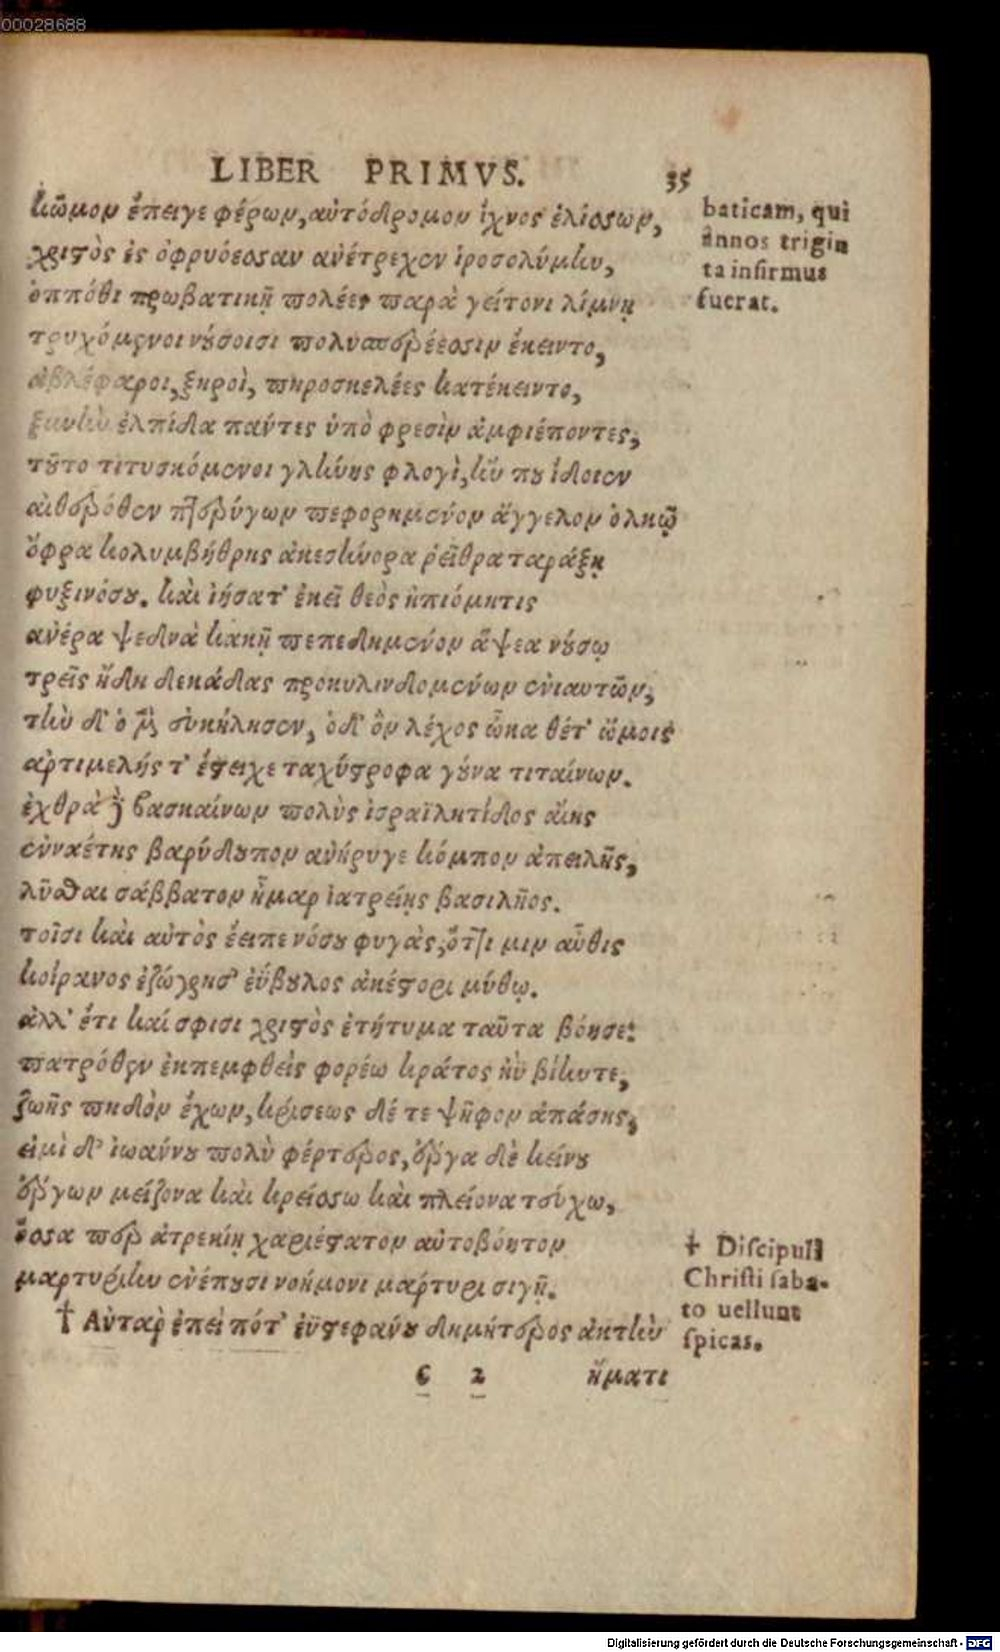 00028688
LIBER PRIMVS. 35
κῶμον ἔπειγε φέρων, αὐτόδρομον ἴχνος ἑλίσσων,
χριστὸς ἐς ὀφρυόεσσαν ἀνέτρεχεν ἱροσολύμην,
ὁππόθι πρωβατικῇ πολέες παρὰ γείτονι λίμνῃ
τρυχόμενοι νούσοισι πολυσπερέεσσιν ἔκειντο,
ἀβλέφαροι, ξηροὶ, πηροσκελέες κατέκειντο,
ξυνὴν ἐλπίδα πάντες ὑπὸ φρεσὶν ἀμφιέποντες,
τοῦτο τιτυσκόμενοι γλήνης φλογὶ, ἤν που ἴδοιεν
αἰθερόθεν πτερύγων πεφορημένον ἄγγελον ὁλκῷ
ὄφρα κολυμβήθρης ἀκεσήνορα ῥεῖθρα ταράξῃ
φυξινόσου. καὶ ἰήσατ' ἐκεῖ θεὸς ἠπιόμητις
ἀνέρα ψεδνὰ κακῇ πεπεδημένον ἅψεα νούσῳ
τρεῖς ἤδη δεκάδας προκυλινδομένων ἐνιαυτῶν,
τὴν δ' ὁ μὲν εὐκήλησεν, ὁ δ' ὃν λέχος ὦκα θέτ' ὤμοις
ἀρτιμελής τ' ἔστειχε ταχύστροφα γούνα τιταίνων.
ἐχθρὰ δὲ βασκαίνων πολὺς ἰσραϊλητίδος αἴης
ἐνναέτης βαρύδουπον ἀνήρυγε κόμπον ἀπειλῆς,
λῦσθαι σάββατον ἦμαρ ἰατρείης βασιλῆος.
τοῖσι καὶ αὐτὸς ἔειπε νόσου φυγὰς, ὅττι μιν αὖθις
κοίρανος ἐζώγρησ' εὔβουλος ἀκέστορι μύθῳ.
ἀλλ' ἔτι καί σφισι χριστὸς ἐτήτυμα ταῦτα βόησε:
πατρόθεν ἐκπεμφθεὶς φορέω κράτος ἠΰ βίης τε,
ζωῆς πηδὸν ἔχων, κρίσεως δέ τε ψῆφον ἁπάσης,
εἰμὶ δ' ἰωάννου πολὺ φέρτερος, ἔργα δὲ κείνου
ἔργων μείζονα καὶ κρείσσω καὶ πλείονα τεύχω,
ὅσσα περ ἀτρεκίῃ χαριέστατον αὐτοβόητον
μαρτυρίην ἐνέπουσι νοήμονι μάρτυρι σιγῇ.
† Αὐτὰρ ἐπεὶ πότ' ἐϋστεφάνου δημήτερος ἀκτὴν
c 2 ἤματι
baticam, qui
annos trigin
ta infirmus
fuerat.
† Discipuli
Christi saba-
to uellunt
spicas.
Digitalisierung gefördert durch die Deutsche Forschungsgemeinschaft - DFG